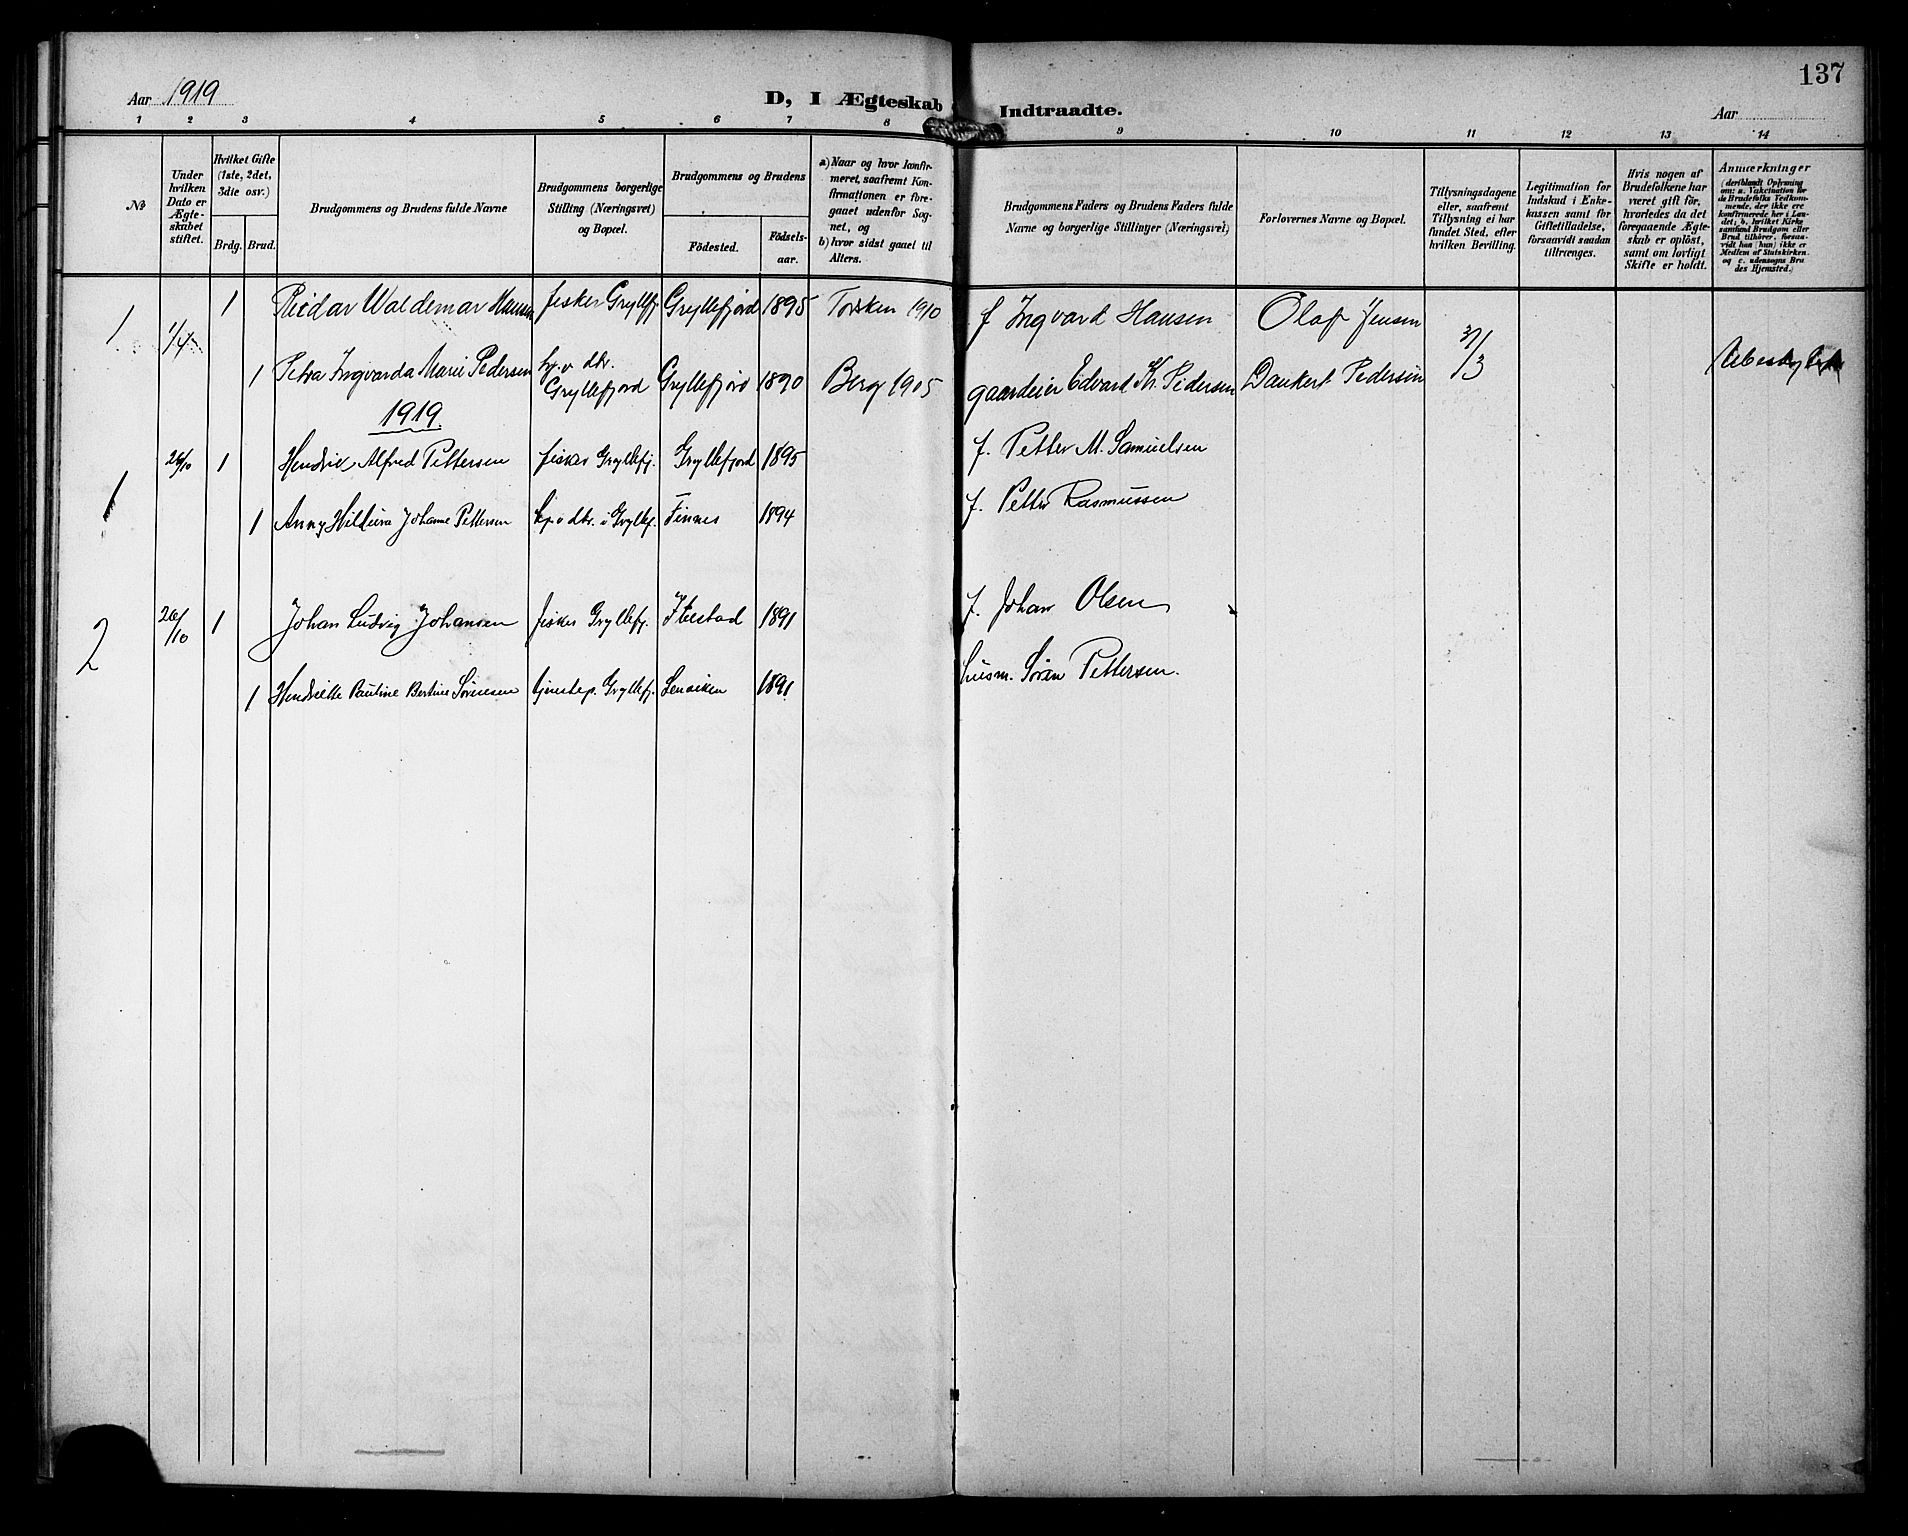 Aar 1919
D, I Ægteskab Indtraadte.
Aar
137
1 2 3 4 5 6 7 8 9 10 11 12 13 14
№
Under hvilken Dato er Ægte-skabet stiftet.
Hvilket Gifte (1ste, 2det, 3die osv.)
Brdg. Brud.
Brudgommens og Brudens fulde Navne
Brudgommens borgerlige Stilling (Næringsvei) og Bopæl.
Brudgommens og Brudens
Födested.
Födsels-aar.
a) Naar og hvor konfir-meret, saafremt Kon-firmationen er fore-gaaet udenfor Sog-net, og
b) hvor sidst gaaet til Alters.
Brudgommens Faders og Brudens Faders fulde Navne og borgerlige Stillinger (Næringsvei)
Forlovernes Navne og Bopæl.
Tillysningsdagene eller, saafremt Tillysning ei har fundet Sted, efter hvilken Bevilling.
Legitimation for Indskud i Enke-kassen samt for Giftetilladelse, forsaavidt saadan tiltrænges.
Hvis nogen af Brudefolkene har været gift för, hvorledes da det foregaaende Ægte-skab er oplöst, samt om lovligt Skifte er holdt.
Anmærkninger
(deriblandt Oplysning om: a. Vakcination for de Brudefolks Vedkom-mende, der ikke ere konfirmerede her i Lan-det; b. hvilket Kirke samfund Brudgom eller Brud tilhörer, forsaa-vidt han (hun) ikke er Medlem af Statskirken. og c. udensogns Bru des Hjemsted.)
1 1/4 1 Reidar Waldemar Hansen fisker Gryllefj. Gryllefjord 1895 Torsken 1910 f Ingvard Hansen Olaf Jensen 3/3
1 Petra Ingvarda Marie Pedersen dtr. Gryllefjord Gryllefjord 1890 Berg 1905 gaardeier Edvard Kr. Pedersen Dankert Pedersen
1919.
1 26/10 1 Hendrik Alfred Pettersen fisker Gryllefj. Gryllefjord 1895 f. Petter M. Samuelsen
1 Anny Johanne Pettersen dtr. i Gryllef. Finnes 1894 f. Petter Rasmussen
2 26/10 1 Johan Ludvig Johansen fisker Gryllefj. Ibestad 1891 f. Johan Olsen
1 Hendrikke Pauline Bertine Sørensen Gryllefj. Lenviken 1891 husm. Søren Pettersen.